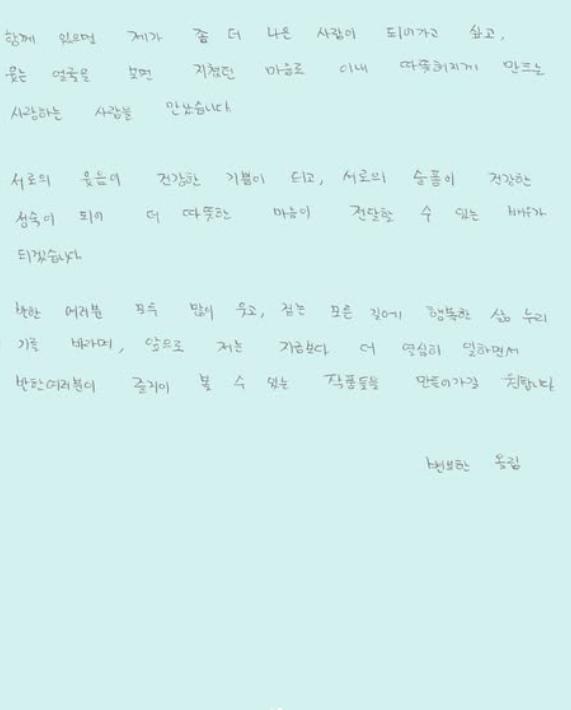 함께 있으면 제가 좀 더 나은 사람이 되어가고 싶고,
웃는 얼굴을 보면 지쳤던 마음도 이내 따뜻해지게 만드는
사랑하는 사람을 만났습니다
서로의 웃음이 건강한 기쁨이 되고, 서로의 슬픔이 건강한
성숙이 되어 더 따뜻한 마음이 전달할 수 있는 배우가
되겠습니다
반한 여러분 모두 많이 웃고, 걷는 모든 길에 행복한 삶 누리
기를 바라며, 앞으로 저는 지금보다 더 열심히 일하면서
반한여러분이 즐거이 볼 수 있는 작품들을 만들어가길 원합니다
변요한 올림